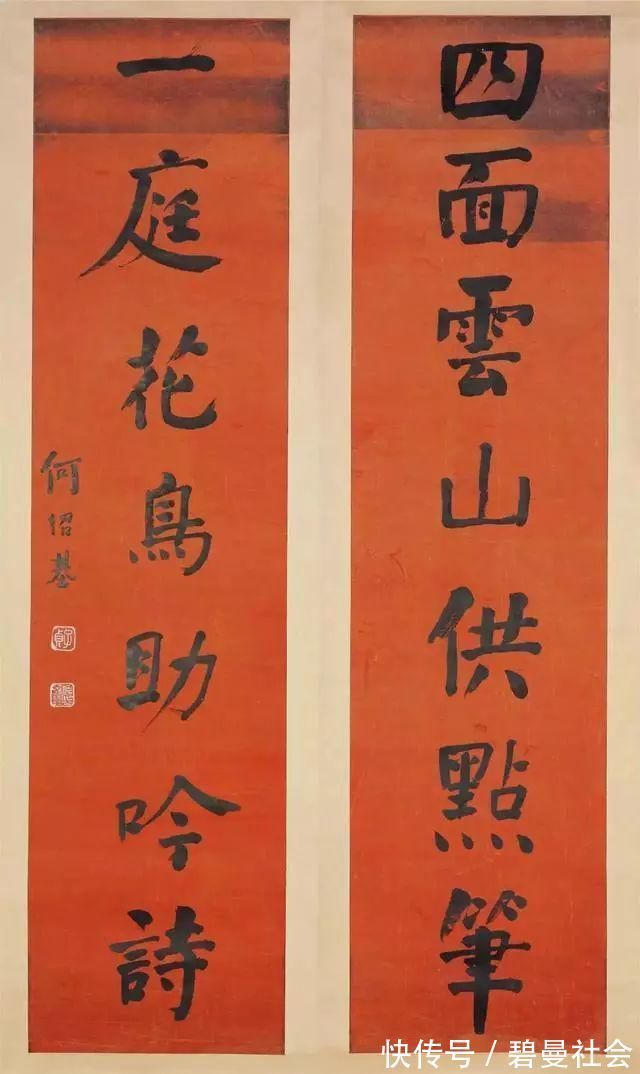 四面雲山供點筆
一庭花鳥助吟詩
何紹基
子貞
快传号／碧曼社会